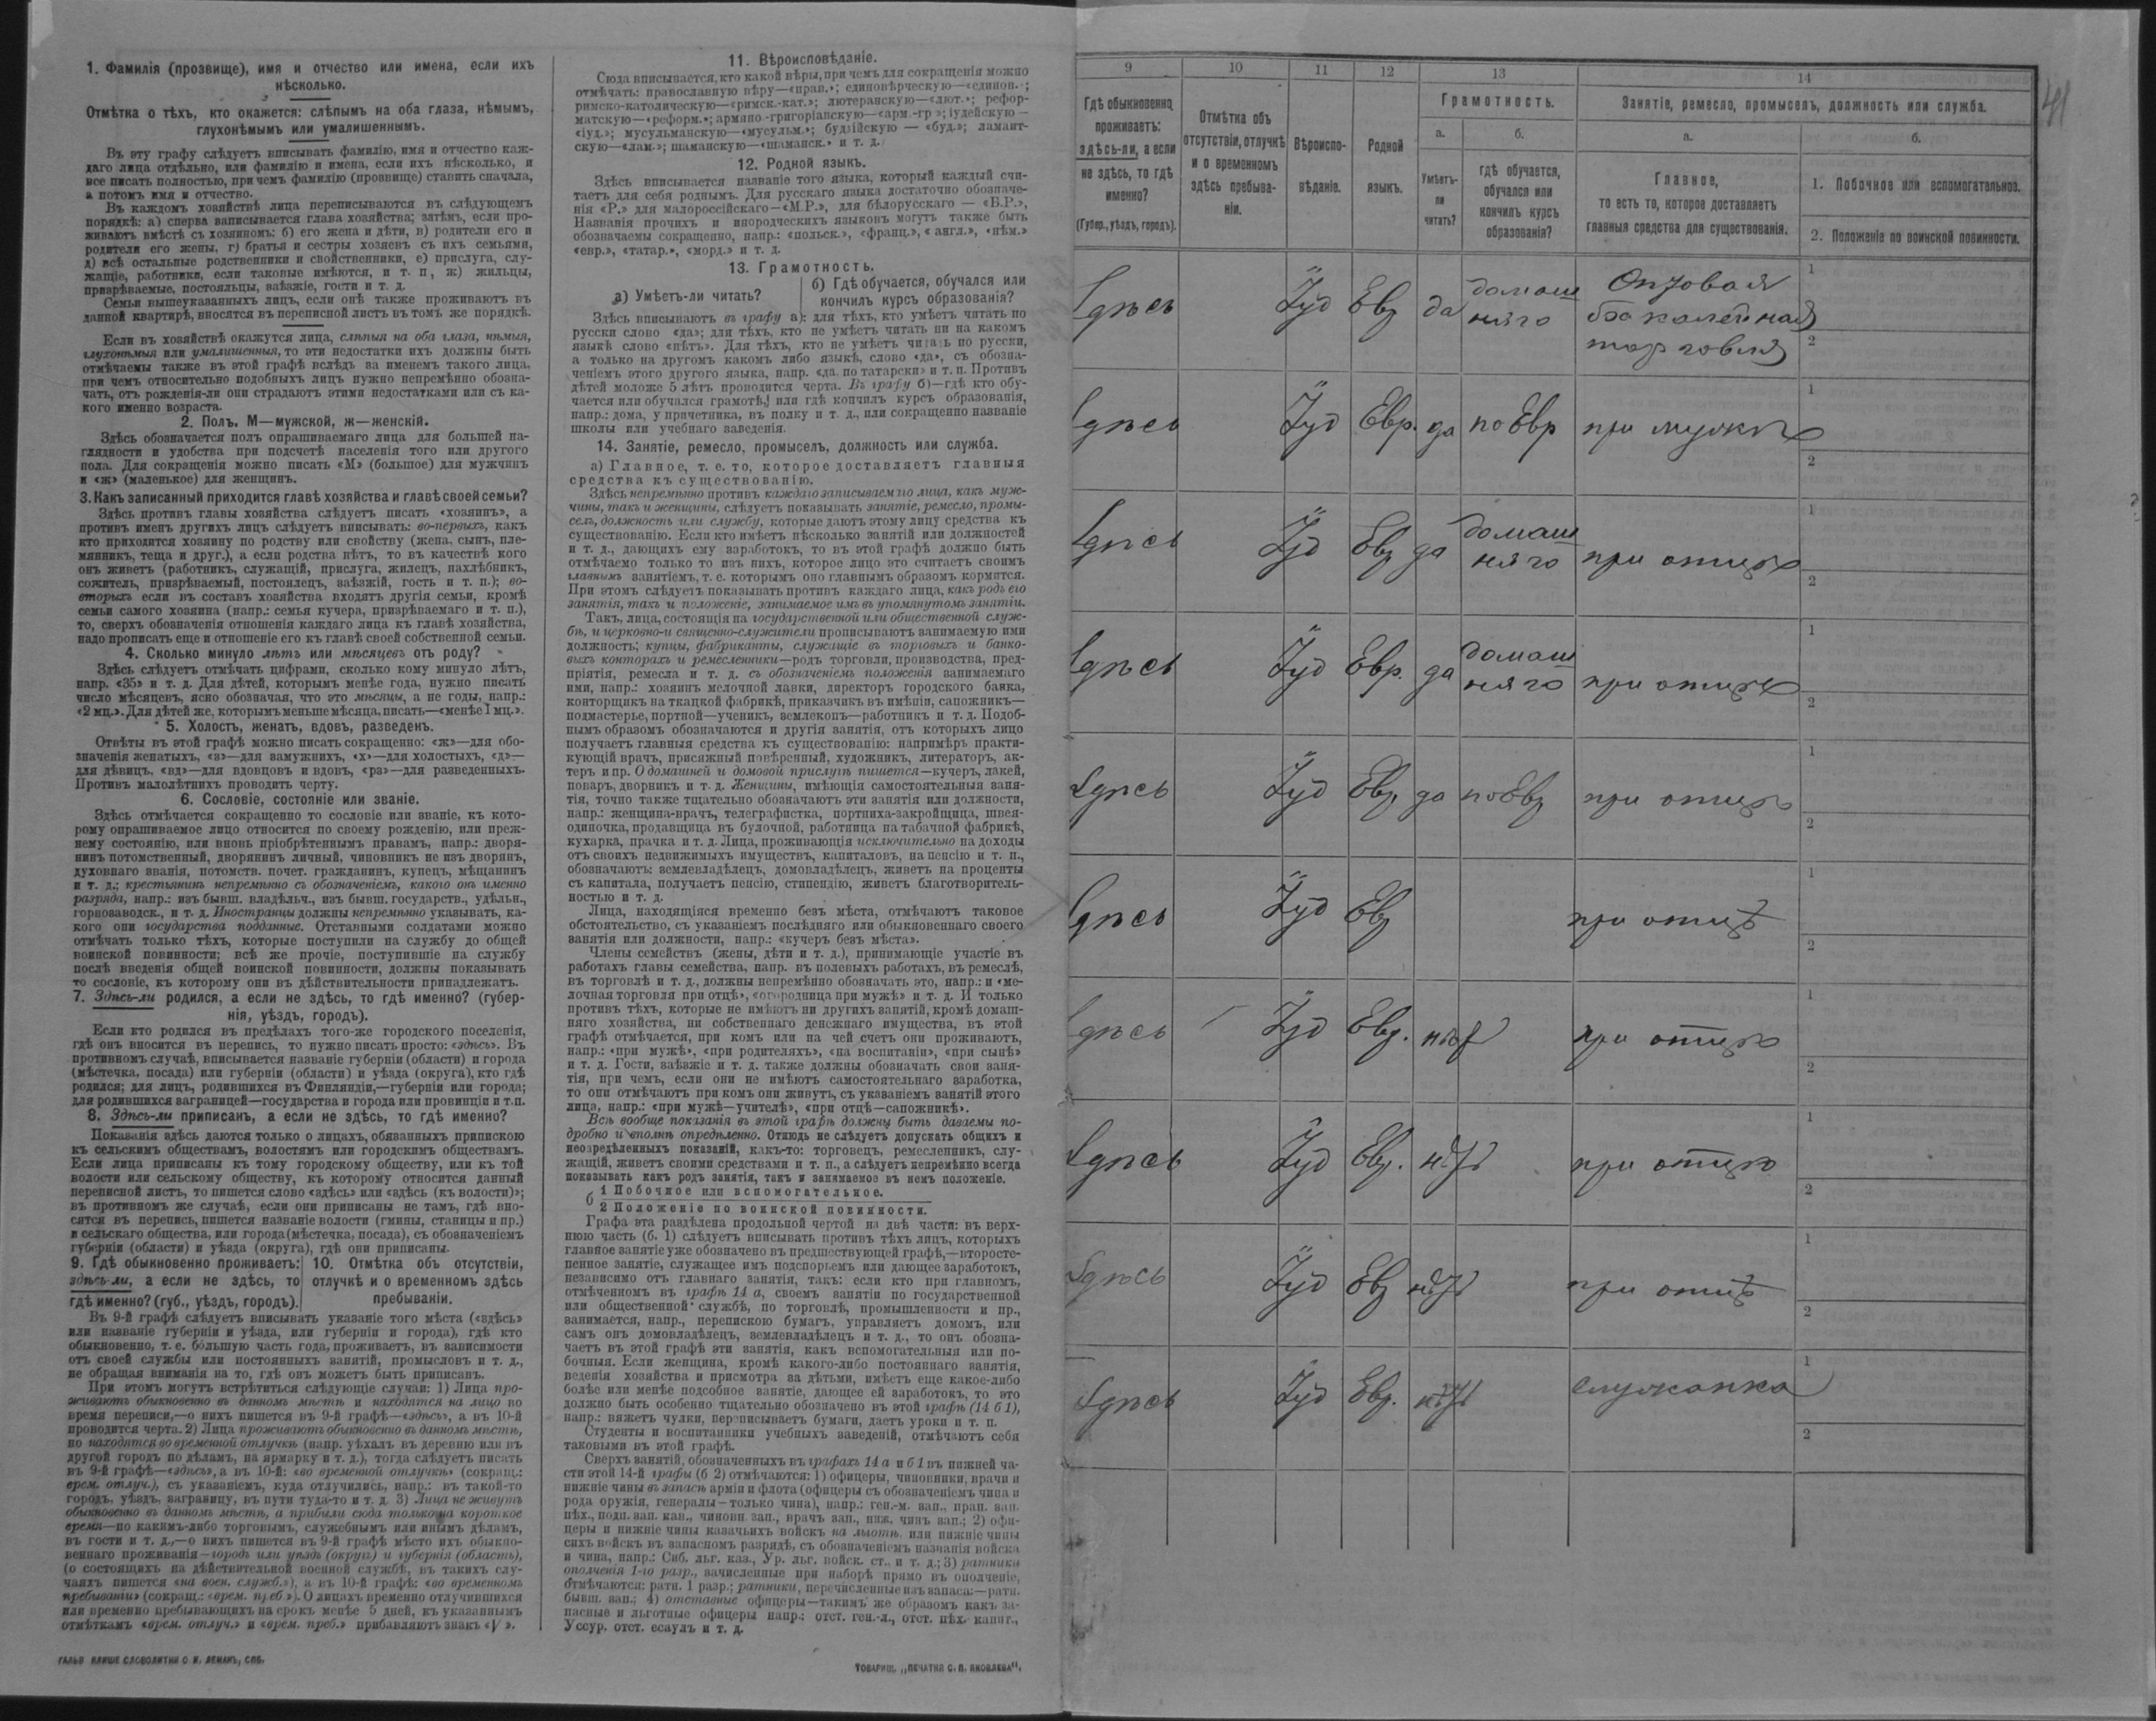 1. Фамилія (прозвище), имя и отчество или имена, если ихъ
нѣсколько.
Отмѣтка о тѣхъ, кто окажется: слѣпымъ на оба глаза, нѣмымъ,
глухонѣмымъ или умалишеннымъ.
Въ эту графу слѣдуетъ вписывать фамилію, имя и отчество каж-
даго лица отдѣльно, или фамилію и имена, если ихъ нѣсколько, и
все писать полностью, при чемъ фамилію (прозвище) ставить сначала,
а потомъ имя и отчество.
Въ каждомъ хозяйствѣ лица переписываются въ слѣдующемъ
порядкѣ: а) сперва записывается глава хозяйства; затѣмъ, если про-
живаютъ вмѣстѣ съ хозяиномъ: б) его жена и дѣти, в) родители его и
родители его жены, г) братья и сестры хозяевъ съ ихъ семьями,
д) всѣ остальные родственники и свойственники, е) прислуга, слу-
жащіе, работники, если таковые имѣются, и т. п., ж) жильцы,
призрѣваемые, постояльцы, заѣзжіе, гости и т. д.
Семьи вышеуказанныхъ лицъ, если онѣ также проживаютъ въ
данной квартирѣ, вносятся въ переписной листъ въ томъ же порядкѣ.
Если въ хозяйствѣ окажутся лица, слѣпыя на оба глаза, нѣмыя,
глухонѣмыя или умалишенныя, то эти недостатки ихъ должны быть
отмѣчаемы также въ этой графѣ вслѣдъ за именемъ такого лица,
при чемъ относительно подобныхъ лицъ нужно непремѣнно обозна-
чать, отъ рожденія-ли они страдаютъ этими недостатками или съ ка-
кого именно возраста.
2. Полъ. М—мужской, ж—женскій.
Здѣсь обозначается полъ опрашиваемаго лица для большей на-
глядности и удобства при подсчетѣ населенія того или другого
пола. Для сокращенія можно писать «М» (большое) для мужчинъ
и «ж» (маленькое) для женщинъ.
3. Какъ записанный приходится главѣ хозяйства и главѣ своей семьи?
Здѣсь противъ главы хозяйства слѣдуетъ писать «хозяинъ», а
противъ именъ другихъ лицъ слѣдуетъ вписывать: во-первыхъ, какъ
кто приходится хозяину по родству или свойству (жена, сынъ, пле-
мянникъ, теща и друг.), а если родства нѣтъ, то въ качествѣ кого
онъ живетъ (работникъ, служащій, прислуга, жилецъ, нахлѣбникъ,
сожитель, призрѣваемый, постоялецъ, заѣзжій, гость и т. п.); во-
вторыхъ если въ составъ хозяйства входятъ другія семьи, кромѣ
семьи самого хозяина (напр.: семья кучера, призрѣваемаго и т. п.),
то, сверхъ обозначенія отношенія каждаго лица къ главѣ хозяйства,
надо прописать еще и отношеніе его къ главѣ своей собственной семьи.
4. Сколько минуло лѣтъ или мѣсяцевъ отъ роду?
Здѣсь слѣдуетъ отмѣчать цифрами, сколько кому минуло лѣтъ,
напр. «35» и т. д. Для дѣтей, которымъ менѣе года, нужно писать
число мѣсяцевъ, ясно обозначая, что это мѣсяцы, а не годы, напр.:
«2 мц.». Для дѣтей же, которымъ меньше мѣсяца, писать—«менѣе 1 мц.».
5. Холостъ, женатъ, вдовъ, разведенъ.
Отвѣты въ этой графѣ можно писать сокращенно: «ж»—для обо-
значенія женатыхъ, «з»—для замужнихъ, «х»—для холостыхъ, «д»—
для дѣвицъ, «вд»—для вдовцовъ и вдовъ, «рз»—для разведенныхъ.
Противъ малолѣтнихъ проводить черту.
6. Сословіе, состояніе или званіе.
Здѣсь отмѣчается сокращенно то сословіе или званіе, къ кото-
рому опрашиваемое лицо относится по своему рожденію, или преж-
нему состоянію, или вновь пріобрѣтеннымъ правамъ, напр.: дворя-
нинъ потомственный, дворянинъ личный, чиновникъ не изъ дворянъ,
духовнаго званія, потомств. почет. гражданинъ, купецъ, мѣщанинъ
и т. д.; крестьянинъ непремѣнно съ обозначеніемъ, какого онъ именно
разряда, напр.: изъ бывш. владѣльч., изъ бывш. государств., удѣльн.,
горнозаводск., и т. д. Иностранцы должны непремѣнно указывать, ка-
кого они государства подданные. Отставными солдатами можно
отмѣчать только тѣхъ, которые поступили на службу до общей
воинской повинности; всѣ же прочіе, поступившіе на службу
послѣ введенія общей воинской повинности, должны показывать
то сословіе, къ которому они въ дѣйствительности принадлежатъ.
7. Здѣсь-ли родился, а если не здѣсь, то гдѣ именно? (губер-
нія, уѣздъ, городъ).
Если кто родился въ предѣлахъ того-же городского поселенія,
гдѣ онъ вносится въ перепись, то нужно писать просто: «здѣсь». Въ
противномъ случаѣ, вписывается названіе губерніи (области) и города
(мѣстечка, посада) или губерніи (области) и уѣзда (округа), кто гдѣ
родился; для лицъ, родившихся въ Финляндіи,—губерніи или города;
для родившихся заграницей—государства и города или провинціи и т.п.
8. Здѣсь-ли приписанъ, а если не здѣсь, то гдѣ именно?
Показанія здѣсь даются только о лицахъ, обязанныхъ припискою
къ сельскимъ обществамъ, волостямъ или городскимъ обществамъ.
Если лица приписаны къ тому городскому обществу, или къ той
волости или сельскому обществу, къ которому относится данный
переписной листъ, то пишется слово «здѣсь» или «здѣсь (къ волости)»;
въ противномъ же случаѣ, если они приписаны не тамъ, гдѣ вно-
сятся въ перепись, пишется названіе волости (гмины, станицы и пр.)
и сельскаго общества, или города (мѣстечка, посада), съ обозначеніемъ
губерніи (области) и уѣзда (округа), гдѣ они приписаны.
9. Гдѣ обыкновенно проживаетъ:
здѣсь-ли, а если не здѣсь, то
гдѣ именно? (губ., уѣздъ, городъ).
10. Отмѣтка объ отсутствіи,
отлучкѣ и о временномъ здѣсь
пребываніи.
Въ 9-й графѣ слѣдуетъ вписывать указаніе того мѣста («здѣсь»
или названіе губерніи и уѣзда, или губерніи и города), гдѣ кто
обыкновенно, т. е. бо́льшую часть года, проживаетъ, въ зависимости
отъ своей службы или постоянныхъ занятій, промысловъ и т. д.,
не обращая вниманія на то, гдѣ онъ можетъ быть приписанъ.
При этомъ могутъ встрѣтиться слѣдующіе случаи: 1) Лица про-
живаютъ обыкновенно въ данномъ мѣстѣ и находятся на лицо во
время переписи,—о нихъ пишется въ 9-й графѣ—«здѣсь», а въ 10-й
проводится черта. 2) Лица проживаютъ обыкновенно въ данномъ мѣстѣ,
но находятся во временной отлучкѣ (напр. уѣхалъ въ деревню или въ
другой городъ по дѣламъ, на ярмарку и т. д.), тогда слѣдуетъ писать
въ 9-й графѣ—«здѣсь», а въ 10-й: «во временной отлучкѣ» (сокращ.:
врем. отлуч.), съ указаніемъ, куда отлучились, напр.: въ такой-то
городъ, уѣздъ, заграницу, въ пути туда-то и т. д. 3) Лица не живутъ
обыкновенно въ данномъ мѣстѣ, а прибыли сюда только на короткое
время—по какимъ-либо торговымъ, служебнымъ или инымъ дѣламъ,
въ гости и т. д.,—о нихъ пишется въ 9-й графѣ мѣсто ихъ обыкно-
веннаго проживанія—городъ или уѣздъ (округъ) и губернія (область),
(о состоящихъ на дѣйствительной военной службѣ, въ такихъ слу-
чаяхъ пишется «на воен. служб.»), а въ 10-й графѣ: «во временномъ
пребываніи» (сокращ.: «врем. преб.»). О лицахъ временно отлучившихся
или временно пребывающихъ на срокъ менѣе 5 дней, къ указаннымъ
отмѣткамъ «врем. отлуч.» и «врем. преб.» прибавляютъ знакъ «V».
11. Вѣроисповѣданіе.
Сюда вписывается, кто какой вѣры, при чемъ для сокращенія можно
отмѣчать: православную вѣру—«прав.»; единовѣрческую—«единов.»;
римско-католическую—«римск.-кат.»; лютеранскую—«лют.»; рефор-
матскую—«реформ.»; армяно-григоріанскую—«арм.-гр.»; іудейскую—
«іуд.»; мусульманскую—«мусульм.»; буддійскую — «буд.»; ламаит-
скую—«лам.»; шаманскую—«шаманск.» и т. д.
12. Родной языкъ.
Здѣсь вписывается названіе того языка, который каждый счи-
таетъ для себя роднымъ. Для русскаго языка достаточно обозначе-
нія «Р.» для малороссійскаго—«М.Р.», для бѣлорусскаго — «Б.Р.»,
Названія прочихъ и инородческихъ языковъ могутъ также быть
обозначаемы сокращенно, напр.: «польск.», «франц.», «англ.», «нѣм.»
«евр.», «татар.», «морд.» и т. д.
13. Грамотность.
а) Умѣетъ-ли читать?
б) Гдѣ обучается, обучался или
кончилъ курсъ образованія?
Здѣсь вписываютъ въ графу а): для тѣхъ, кто умѣетъ читать по
русски слово «да»; для тѣхъ, кто не умѣетъ читать ни на какомъ
языкѣ слово «нѣтъ». Для тѣхъ, кто не умѣетъ читать по русски,
а только на другомъ какомъ либо языкѣ, слово «да», съ обозна-
ченіемъ этого другого языка, напр. «да. по татарски» и т. п. Противъ
дѣтей моложе 5 лѣтъ проводится черта. Въ графу б)—гдѣ кто обу-
чается или обучался грамотѣ, или гдѣ кончилъ курсъ образованія,
напр.: дома, у причетника, въ полку и т. д., или сокращенно названіе
школы или учебнаго заведенія.
14. Занятіе, ремесло, промыселъ, должность или служба.
а) Главное, т. е. то, которое доставляетъ главныя
средства къ существованію.
Здѣсь непремѣнно противъ каждаго записываемаго лица, какъ муж-
чины, такъ и женщины, слѣдуетъ показывать занятіе, ремесло, промы-
селъ, должность или службу, которые даютъ этому лицу средства къ
существованію. Если кто имѣетъ нѣсколько занятій или должностей
и т. д., дающихъ ему заработокъ, то въ этой графѣ должно быть
отмѣчаемо только то изъ нихъ, которое лицо это считаетъ своимъ
главнымъ занятіемъ, т. е. которымъ оно главнымъ образомъ кормится.
При этомъ слѣдуетъ показывать противъ каждаго лица, какъ родъ его
занятія, такъ и положеніе, занимаемое имъ въ упомянутомъ занятіи.
Такъ, лица, состоящія на государственной или общественной служ-
бѣ, и церковно-и священно-служители прописываютъ занимаемую ими
должность; купцы, фабриканты, служащіе въ торговыхъ и банко-
выхъ конторахъ и ремесленники—родъ торговли, производства, пред-
пріятія, ремесла и т. д. съ обозначеніемъ положенія занимаемаго
ими, напр.: хозяинъ мелочной лавки, директоръ городского банка,
конторщикъ на ткацкой фабрикѣ, приказчикъ въ имѣніи, сапожникъ—
подмастерье, портной—ученикъ, землекопъ—работникъ и т. д. Подоб-
нымъ образомъ обозначаются и другія занятія, отъ которыхъ лицо
получаетъ главныя средства къ существованію: напримѣръ практи-
кующій врачъ, присяжный повѣренный, художникъ, литераторъ, ак-
теръ и пр. О домашней и домовой прислугѣ пишется—кучеръ, лакей,
поваръ, дворникъ и т. д. Женщины, имѣющія самостоятельныя заня-
тія, точно также тщательно обозначаютъ эти занятія или должности,
напр.: женщина-врачъ, телеграфистка, портниха-закройщица, швея-
одиночка, продавщица въ булочной, работница на табачной фабрикѣ,
кухарка, прачка и т. д. Лица, проживающія исключительно на доходы
отъ своихъ недвижимыхъ имуществъ, капиталовъ, на пенсію и т. п.,
обозначаютъ: землевладѣлецъ, домовладѣлецъ, живетъ на проценты
съ капитала, получаетъ пенсію, стипендію, живетъ благотворитель-
ностью и т. д.
Лица, находящіяся временно безъ мѣста, отмѣчаютъ таковое
обстоятельство, съ указаніемъ послѣдняго или обыкновеннаго своего
занятія или должности, напр.: «кучеръ безъ мѣста».
Члены семействъ (жены, дѣти и т. д.), принимающіе участіе въ
работахъ главы семейства, напр. въ полевыхъ работахъ, въ ремеслѣ,
въ торговлѣ и т. д., должны непремѣнно обозначать это, напр.: и «ме-
лочная торговля при отцѣ», «огородница при мужѣ» и т. д. И только
противъ тѣхъ, которые не имѣютъ ни другихъ занятій, кромѣ домаш-
няго хозяйства, ни собственнаго денежнаго имущества, въ этой
графѣ отмѣчается, при комъ или на чей счетъ они проживаютъ,
напр.: «при мужѣ», «при родителяхъ», «на воспитаніи», «при сынѣ»
и т. д. Гости, заѣзжіе и т. д. также должны обозначать свои заня-
тія, при чемъ, если они не имѣютъ самостоятельнаго заработка,
то они отмѣчаютъ при комъ они живутъ, съ указаніемъ занятій этого
лица, напр.: «при мужѣ—учителѣ», «при отцѣ—сапожникѣ».
Всѣ вообще показанія въ этой графѣ должны быть даваемы по-
дробно и вполнѣ опредѣленно. Отнюдь не слѣдуетъ допускать общихъ и
неопредѣленныхъ показаній, какъ-то: торговецъ, ремесленникъ, слу-
жащій, живетъ своими средствами и т. п., а слѣдуетъ непремѣнно всегда
показывать какъ родъ занятія, такъ и занимаемое въ немъ положеніе.
б 1 Побочное или вспомогательное.
2 Положеніе по воинской повинности.
Графа эта раздѣлена продольной чертой на двѣ части: въ верх-
нюю часть (б. 1) слѣдуетъ вписывать противъ тѣхъ лицъ, которыхъ
главное занятіе уже обозначено въ предшествующей графѣ,—второсте-
пенное занятіе, служащее имъ подспорьемъ или дающее заработокъ,
независимо отъ главнаго занятія, такъ: если кто при главномъ,
отмѣченномъ въ графѣ 14 а, своемъ занятіи по государственной
или общественной службѣ, по торговлѣ, промышленности и пр.,
занимается, напр., перепискою бумагъ, управляетъ домомъ, или
самъ онъ домовладѣлецъ, землевладѣлецъ и т. д., то онъ обозна-
чаетъ въ этой графѣ эти занятія, какъ вспомогательныя или по-
бочныя. Если женщина, кромѣ какого-либо постояннаго занятія,
веденія хозяйства и присмотра за дѣтьми, имѣетъ еще какое-либо
болѣе или менѣе подсобное занятіе, дающее ей заработокъ, то это
должно быть особенно тщательно обозначено въ этой графѣ (14 б 1),
напр.: вяжетъ чулки, переписываетъ бумаги, даетъ уроки и т. п.
Студенты и воспитанники учебныхъ заведеній, отмѣчаютъ себя
таковыми въ этой графѣ.
Сверхъ занятій, обозначенныхъ въ графахъ 14 а и б 1 въ нижней ча-
сти этой 14-й графы (б 2) отмѣчаются: 1) офицеры, чиновники, врачи и
нижніе чины въ запасѣ арміи и флота (офицеры съ обозначеніемъ чина и
рода оружія, генералы—только чина), напр.: ген.-м. зап., прап. зап.
пѣх., подп. зап. кав., чиновн. зап., врачъ зап., ниж. чинъ зап.; 2) офи-
церы и нижніе чины казачьихъ войскъ на льготѣ или нижніе чины
сихъ войскъ въ запасномъ разрядѣ, съ обозначеніемъ названія войска
и чина, напр.: Сиб. льг. каз., Ур. льг. войск. ст., и т. д.; 3) ратники
ополченія 1-го разр., зачисленные при наборѣ прямо въ ополченіе,
отмѣчаются: ратн. 1 разр.; ратники, перечисленные изъ запаса:—ратн.
бывш. зап.; 4) отставные офицеры—такимъ же образомъ какъ за-
пасные и льготные офицеры напр.: отст. ген.-л., отст. пѣх. капит.,
Уссур. отст. есаулъ и т. д.
ГАЛЬВ КЛИШЕ СЛОВОЛИТНИ О. И. ЛЕМАНЪ, СПБ.
ТОВАРИЩ. „ПЕЧАТНЯ С. П. ЯКОВЛЕВА".
41
9 10 11 12 13 14
Гдѣ обыкновенно
проживаетъ:
здѣсь-ли, а если
не здѣсь, то гдѣ
именно?
(Губер., уѣздъ, городъ).
Отмѣтка объ
отсутствіи, отлучкѣ
и о временномъ
здѣсь пребыва-
ніи.
Вѣроиспо-
вѣданіе.
Родной
языкъ.
Грамотность.
а.
Умѣетъ-
ли
читать?
б.
гдѣ обучается,
обучался или
кончилъ курсъ
образованія?
Занятіе, ремесло, промыселъ, должность или служба.
а.
Главное,
то есть то, которое доставляетъ
главныя средства для существованія.
б.
1. Побочное или вспомогательное.
2. Положеніе по воинской повинности.
Здѣсь Іуд Евр да домаш няго Оптовая бакалейная торговля 1 2
Здѣсь Іуд Евр. да по Евр при мужѣ 1 2
Здѣсь Іуд Евр да домаш няго при отцѣ 1 2
Здѣсь Іуд Евр. да домаш няго при отцѣ 1 2
Здѣсь Іуд Евр. да по Евр при отцѣ 1 2
Здѣсь Іуд Евр при отцѣ 1 2
Здѣсь — Іуд Евр. нѣтъ при отцѣ 1 2
Здѣсь Іуд Евр. нѣтъ при отцѣ 1 2
Здѣсь Іуд Евр нѣтъ при отцѣ 1 2
Здѣсь Іуд Евр. нѣтъ служанка 1 2